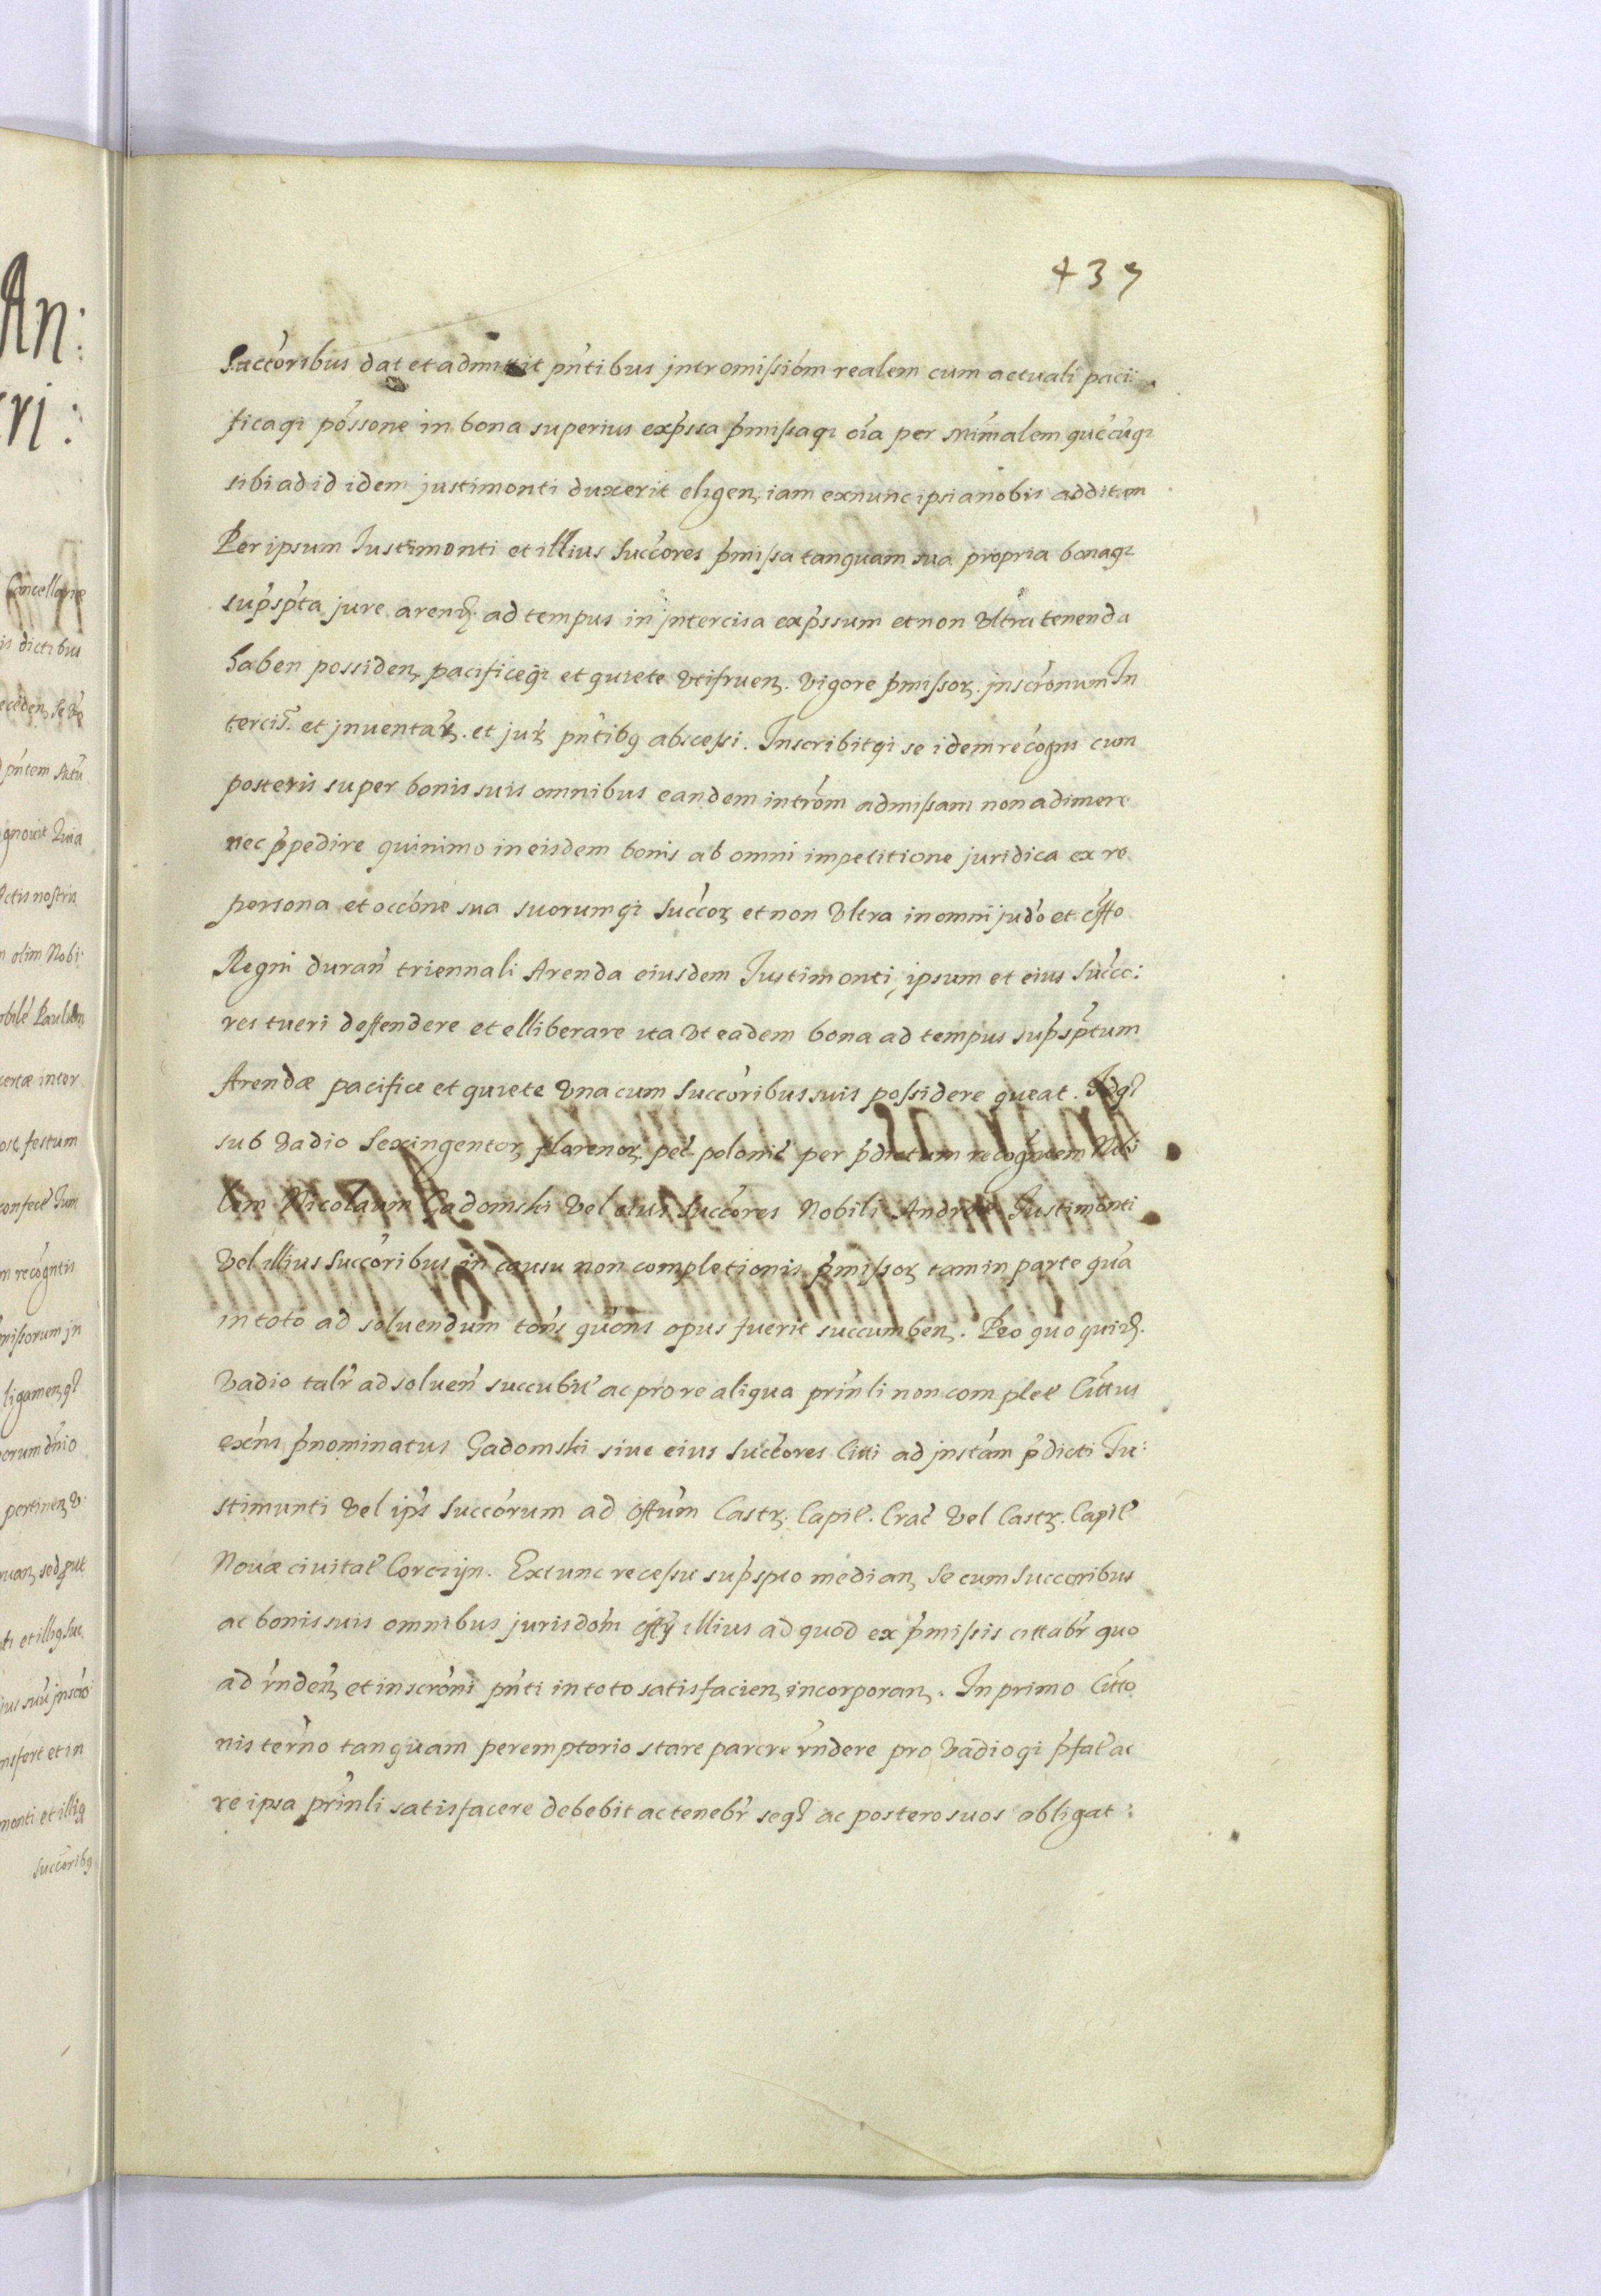 437
Succoribus dat et admittit pntibus jntromissiom realem cum actuali paci:
ficaqi possone in bona superius expssa pmissaqi oia per Mimalem quecuqi
sibi ad id idem justimonti duxerit eligen. iam exnunc ipsi a nobis additum
Per ipsum Justimonti et illius Succores pmissa tanquam sua propria bonaqi
supspta jure arend. ad tempus in jntercisa expssum et non vltra tenenda
haben possiden pacificeqi et quiete vtifruen. vigore pmissor. jnscronum In
tercis. et jnuentar. et jur pntibq abscessi. Inscribitqi se idem recogns cum
posteris super bonis suis omnibus eandem introm admissam non adimere
nec ppedire quinimo in eisdem bonis ab omni impetitione juridica ex re
persona et occone sua suorumqi Succor et non vltra in omni judo et offo
Regni duran triennali Arenda eiusdem Justimonti, ipsum et eius Succo:
res tueri deffendere et elliberare ita vt eadem bona ad tempus supsptum
Arendæ pacifice et quiete vna cum Succoribus suis possidere queat. Idq
sub vadio Sexingentor florenor pec polonic per pdictum recognem Nobi
lem Nicolaum Gadomski vel eius Succores Nobili Andreæ Justimonti
vel illius Succoribus in causu non completionis pmissor tam in parte qua
in toto ad soluendum tons quons opus fuerit succumben. Pro quo quid.
vadio talr ad soluen succubit ac pro re aliqua prinli non complet Cittus
exns pnominatus Gadomski siue eius Succores Citti ad jnstam pdicti Ju:
stimunti vel ips Succorum ad offum Castr. Capit. Crac vel Castr. Capit
Nouæ ciuitat Corczyn. Extunc recessu supspto median Se cum Succoribus
ac bonis suis omnibus jurisdom offy illius ad quod ex pmissis cittabr quo
ad rnden et inscroni pnti in toto satisfacien incorporan. In primo Citto
nis terno tanquam peremptorio stare parere rndere pro vadioqi pfat ac
re ipsa prinli satisfacere debebit ac tenebr seq ac postero suos obligat: